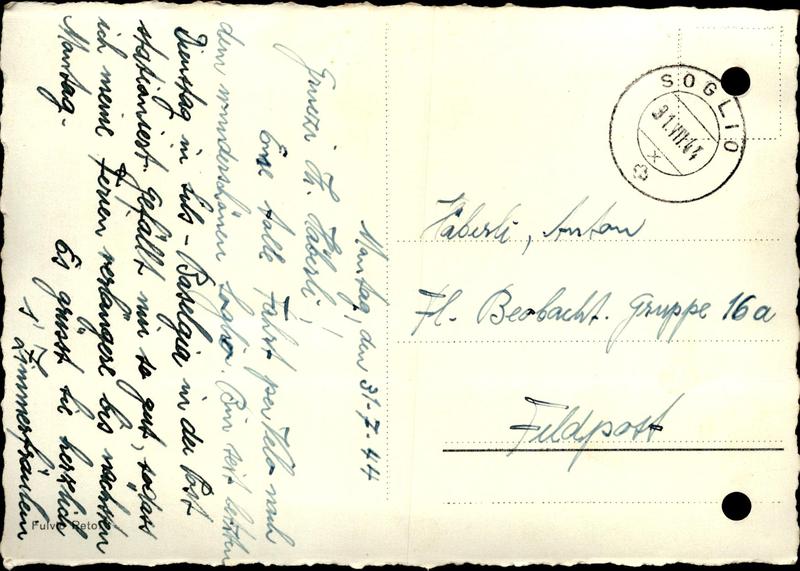 Montag, den 31.7.44
Grüezi Hr. Häberli!
Eine tolle Fahrt per Velo nach
dem wunderschönen Soglio. Bin seit letzten
Dienstag in Sils-Baselgia in der Post
stationiert. Gefällt mir so gut, sodass
ich meine Ferien verlängere bis nächsten
Montag.
Es grüsst Sie herzlich
s' Zimmerfräulein
Fulvio Reto
SOGLIO
31.VII.44
X
Häberli, Anton
Fl. Beobacht. Gruppe 16a
Feldpost